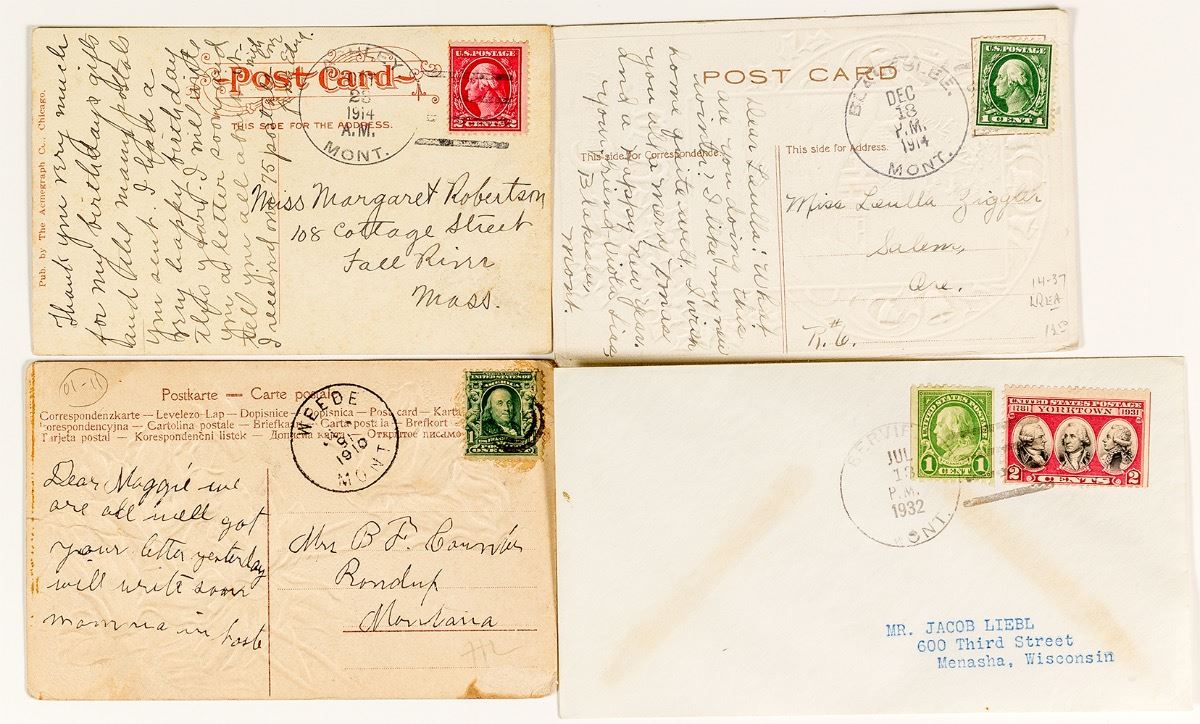 Pub. by The Acmegraph Co., Chicago.
Post Card
THIS SIDE FOR THE ADDRESS.
25
1914
A.M.
MONT.
U.S. POSTAGE
2 CENTS 2
Thank you very much
for my birthday gifts
and Aunt
you sent. I had a
very happy birthday
I will write
you a letter soon and
tell you all about
I received 75
Miss Margaret Robertson
108 Cottage Street
Fall River
Mass.
POST CARD
This side for Correspondence.
This side for Address.
DEC
18
P.M.
1914
MONT.
U.S. POSTAGE
1 CENT 1
Dear Luella: What
are you doing this
winter? I like my new
home quite well. I wish
you all a merry Xmas
and a happy new year.
your friend
Mont.
Miss Luella Ziggler
Salem,
Ore.
R.#6.
14-37
LREA
01-11
Postkarte — Carte postale
Correspondenzkarte — Levelezo-Lap — Dopisnice — Dopisnica — Post card — Karta
orespondencyjna — Cartolina postale — Briefkaart — Carte postala — Brefkort
Tarjeta postal — Korespondenční listek — Дописна карта — Открытое письмо
WEEDE
9
1910
MONT
UNITED STATES OF
AMERICA
ONE
Dear Maggie we
are all well got
your letter yesterday
will write soon
momma in haste
Mrs B F.
Roundup
Montana
JUL
P.M.
1932
MONT.
UNITED STATES POSTAGE
1 CENT 1
UNITED STATES POSTAGE
1781 YORKTOWN 1931
2 CENTS 2
MR. JACOB LIEBL
600 Third Street
Menasha, Wisconsin